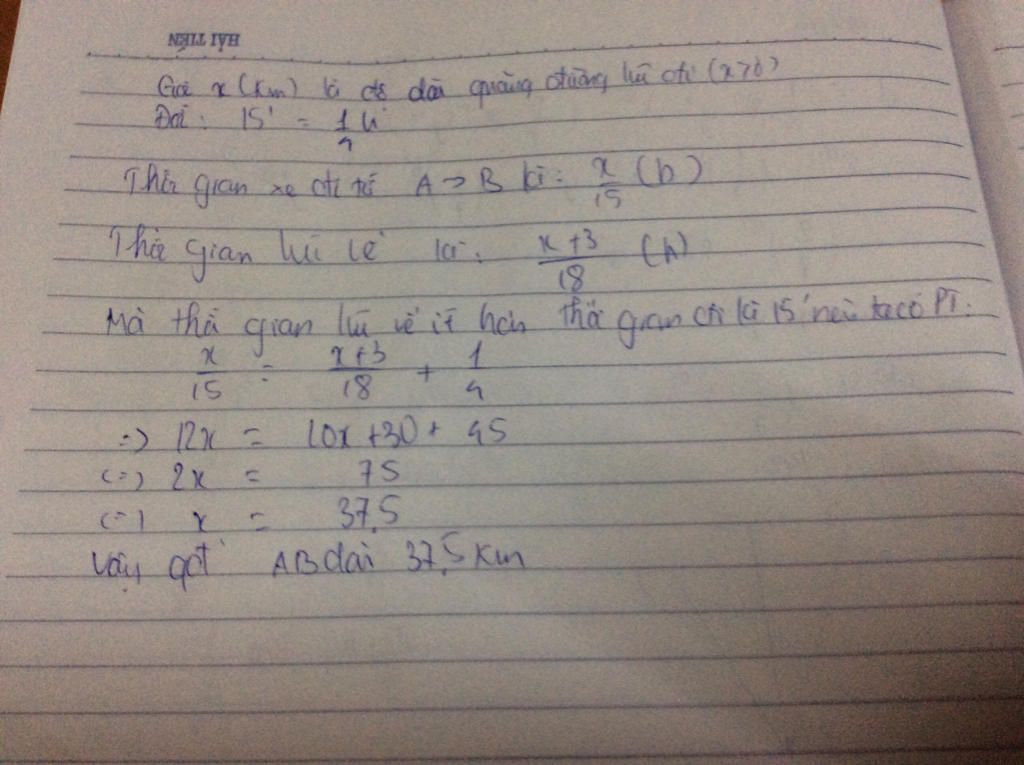 HẢI TIẾN
Gọi x (km) là độ dài quãng đường lúc đi (x>0)
Đổi: 15' = 1/4 h
Thời gian xe đi từ A -> B là: x/15 (h)
Thời gian lúc về là: x+3/18 (h)
Mà thời gian lúc về ít hơn thời gian đi là 15' nên ta có PT:
x/15 = x+3/18 + 1/4
=> 12x = 10x +30 + 45
<=> 2x = 75
<=> x = 37,5
Vậy qđ AB dài 37,5 km